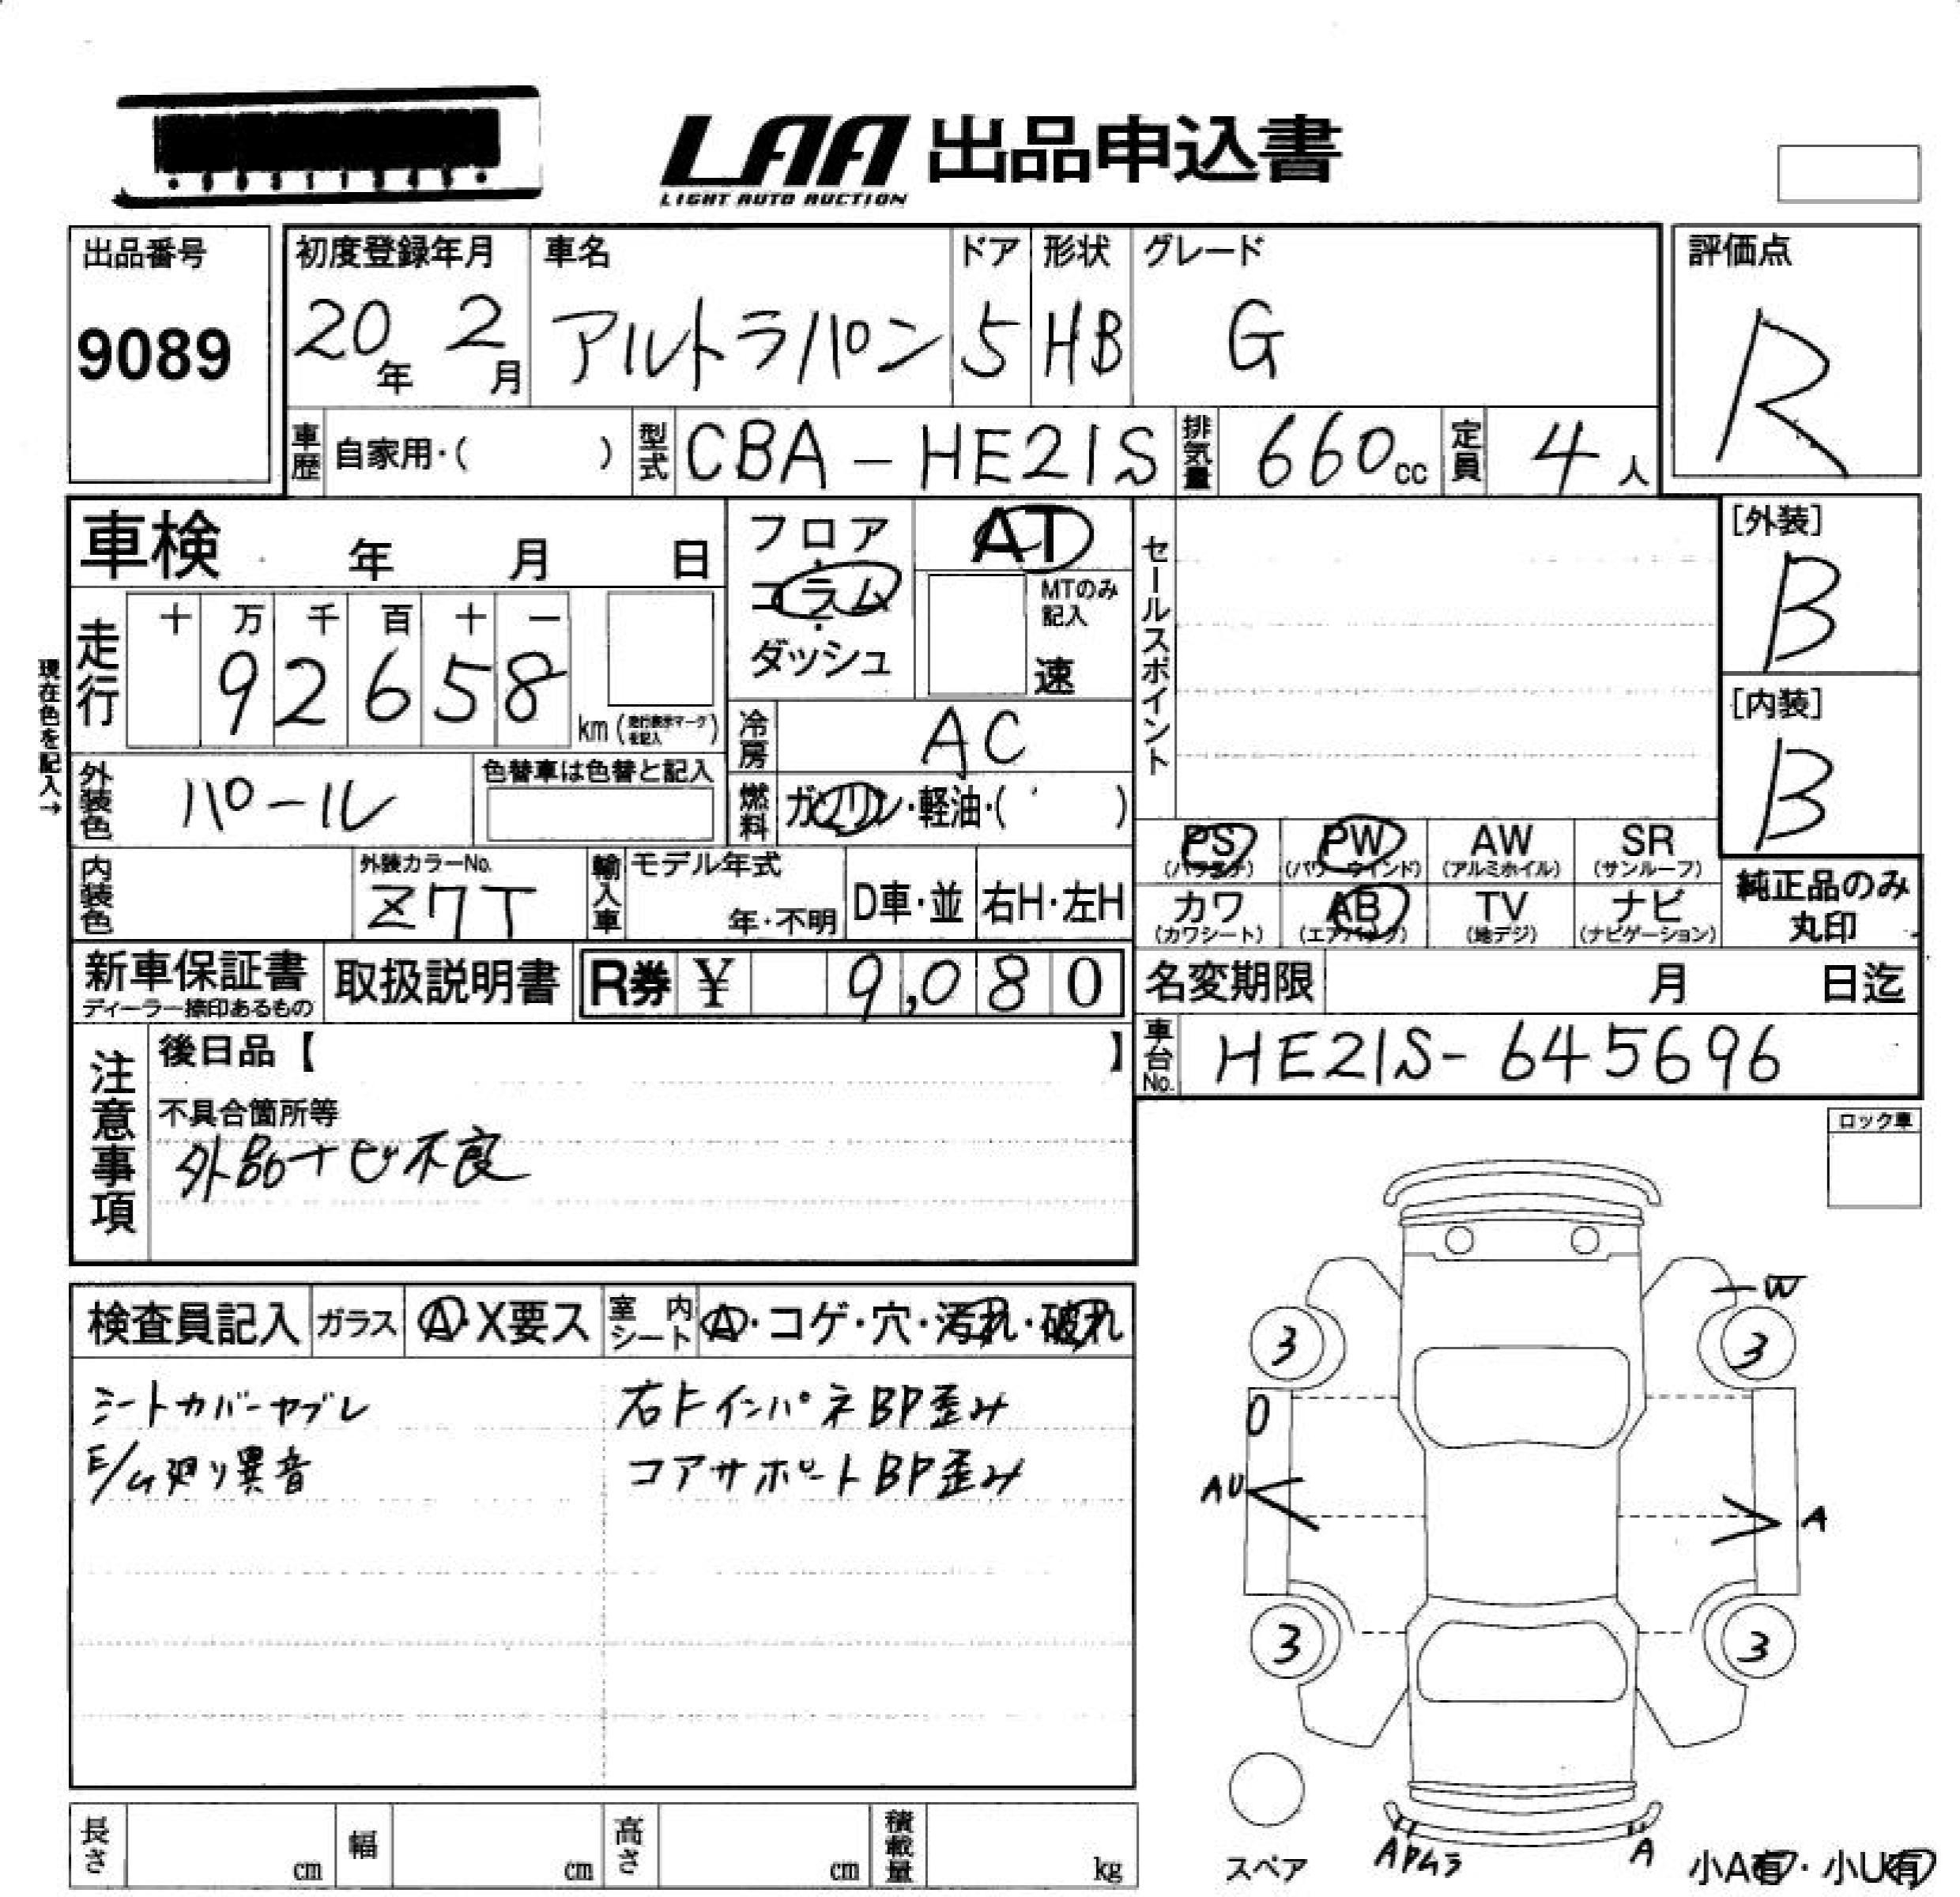 LAA 出品申込書
LIGHT AUTO AUCTION
出品番号
9089
初度登録年月
20年 2月
車名
アルトラパン
ドア
5
形状
HB
グレード
G
評価点
R
車歴 自家用・( )
型式 CBA-HE21S
排気量 660cc
定員 4人
車検 年 月 日
フロア・コラム・ダッシュ
AT
MTのみ記入
速
セールスポイント
[外装]
B
[内装]
B
現在色を記入→
走行
十 万 千 百 十 一
9 2 6 5 8
km (走行表示マークを記入)
冷房 AC
燃料 ガソリン・軽油・( )
外装色 パール
色替車は色替と記入
内装色
外装カラーNo.
Z7T
輸入車 モデル年式
年・不明
D車・並
右H・左H
PS (パワステ)
PW (パワーウインド)
AW (アルミホイル)
SR (サンルーフ)
カワ (カワシート)
AB (エアバッグ)
TV (地デジ)
ナビ (ナビゲーション)
純正品のみ丸印
新車保証書
ディーラー捺印あるもの
取扱説明書
R券 ¥ 9,080
名変期限 月 日迄
車台No. HE21S-645696
注意事項
後日品【 】
不具合箇所等
外品ナビ不良
ロック車
検査員記入
ガラス A・X要ス
室内シート A・コゲ・穴・汚れ・破れ
シートカバーヤブレ
E/G廻り異音
右FインパネBP歪み
コアサポートBP歪み
W
3 3
AU
A
3 3
スペア
APムラ
A
小A有・小U有
長さ cm
幅 cm
高さ cm
積載量 kg